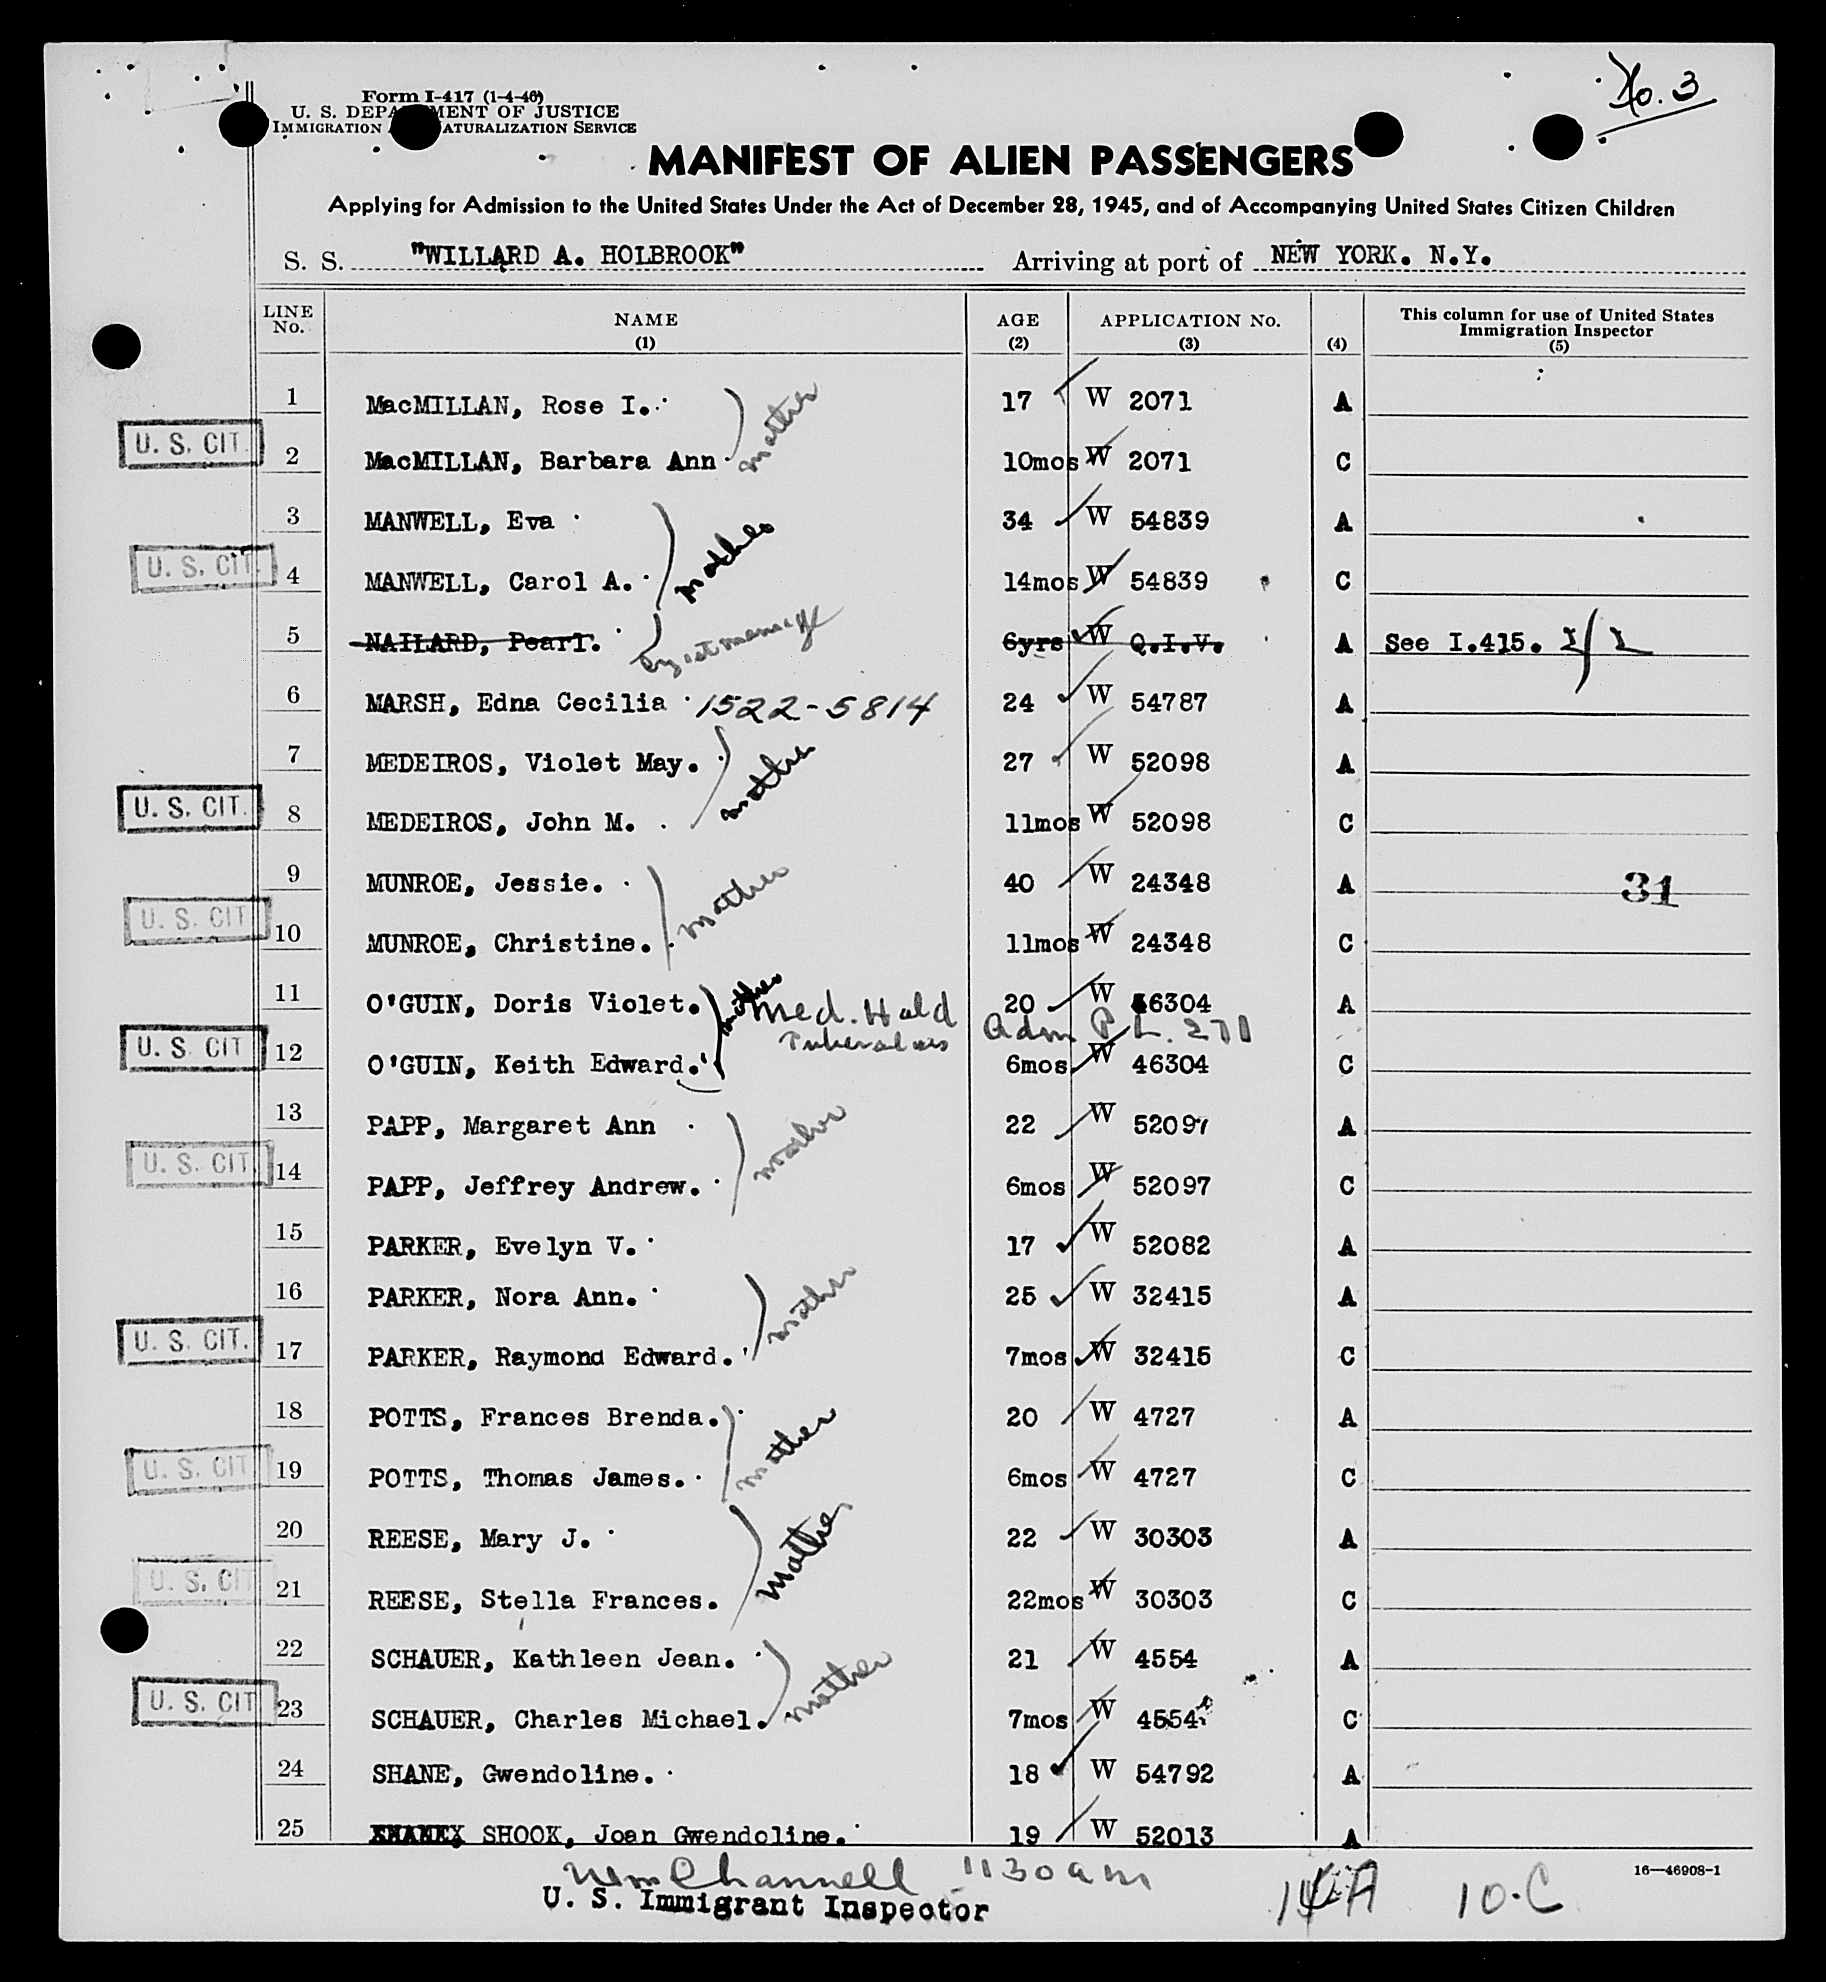 No. 3
Form I-417 (1-4-46)
U. S. DEPA MENT OF JUSTICE
IMMIGRATION ATURALIZATION SERVICE
MANIFEST OF ALIEN PASSENGERS
Applying for Admission to the United States Under the Act of December 28, 1945, and of Accompanying United States Citizen Children
S. S. "WILLARD A. HOLBROOK" Arriving at port of NEW YORK. N.Y.
LINE No. NAME (1) AGE (2) APPLICATION No. (3) (4) This column for use of United States Immigration Inspector (5)
1 MacMILLAN, Rose I. mother 17 W 2071 A
U. S. CIT. 2 MacMILLAN, Barbara Ann 10mos W 2071 C
3 MANWELL, Eva mother 34 W 54839 A
U. S. CIT. 4 MANWELL, Carol A. 14mos W 54839 C
5 NAILARD, Pearl. 6yrs W Q.I.V. A See I.415.
6 MARSH, Edna Cecilia 1522-5814 24 W 54787 A
7 MEDEIROS, Violet May. mother 27 W 52098 A
U. S. CIT. 8 MEDEIROS, John M. 11mos W 52098 C
9 MUNROE, Jessie. mother 40 W 24348 A 31
U. S. CIT 10 MUNROE, Christine. 11mos W 24348 C
11 O'GUIN, Doris Violet. mother Med. Hold 20 W 46304 A
Tuberculosis Adm P.L. 271
U. S. CIT 12 O'GUIN, Keith Edward. 6mos W 46304 C
13 PAPP, Margaret Ann mother 22 W 52097 A
U. S. CIT. 14 PAPP, Jeffrey Andrew. 6mos W 52097 C
15 PARKER, Evelyn V. 17 W 52082 A
16 PARKER, Nora Ann. mother 25 W 32415 A
U. S. CIT. 17 PARKER, Raymond Edward. 7mos W 32415 C
18 POTTS, Frances Brenda. mother 20 W 4727 A
U. S. CIT 19 POTTS, Thomas James. 6mos W 4727 C
20 REESE, Mary J. mother 22 W 30303 A
U. S. CIT 21 REESE, Stella Frances. 22mos W 30303 C
22 SCHAUER, Kathleen Jean. mother 21 W 4554 A
U. S. CIT 23 SCHAUER, Charles Michael. 7mos W 4554 C
24 SHANE, Gwendoline. 18 W 54792 A
25 SHOOK, Joan Gwendoline. 19 W 52013 A
Wm Channell 1130 am
U. S. Immigrant Inspector
14 A 10-C
16—46908-1